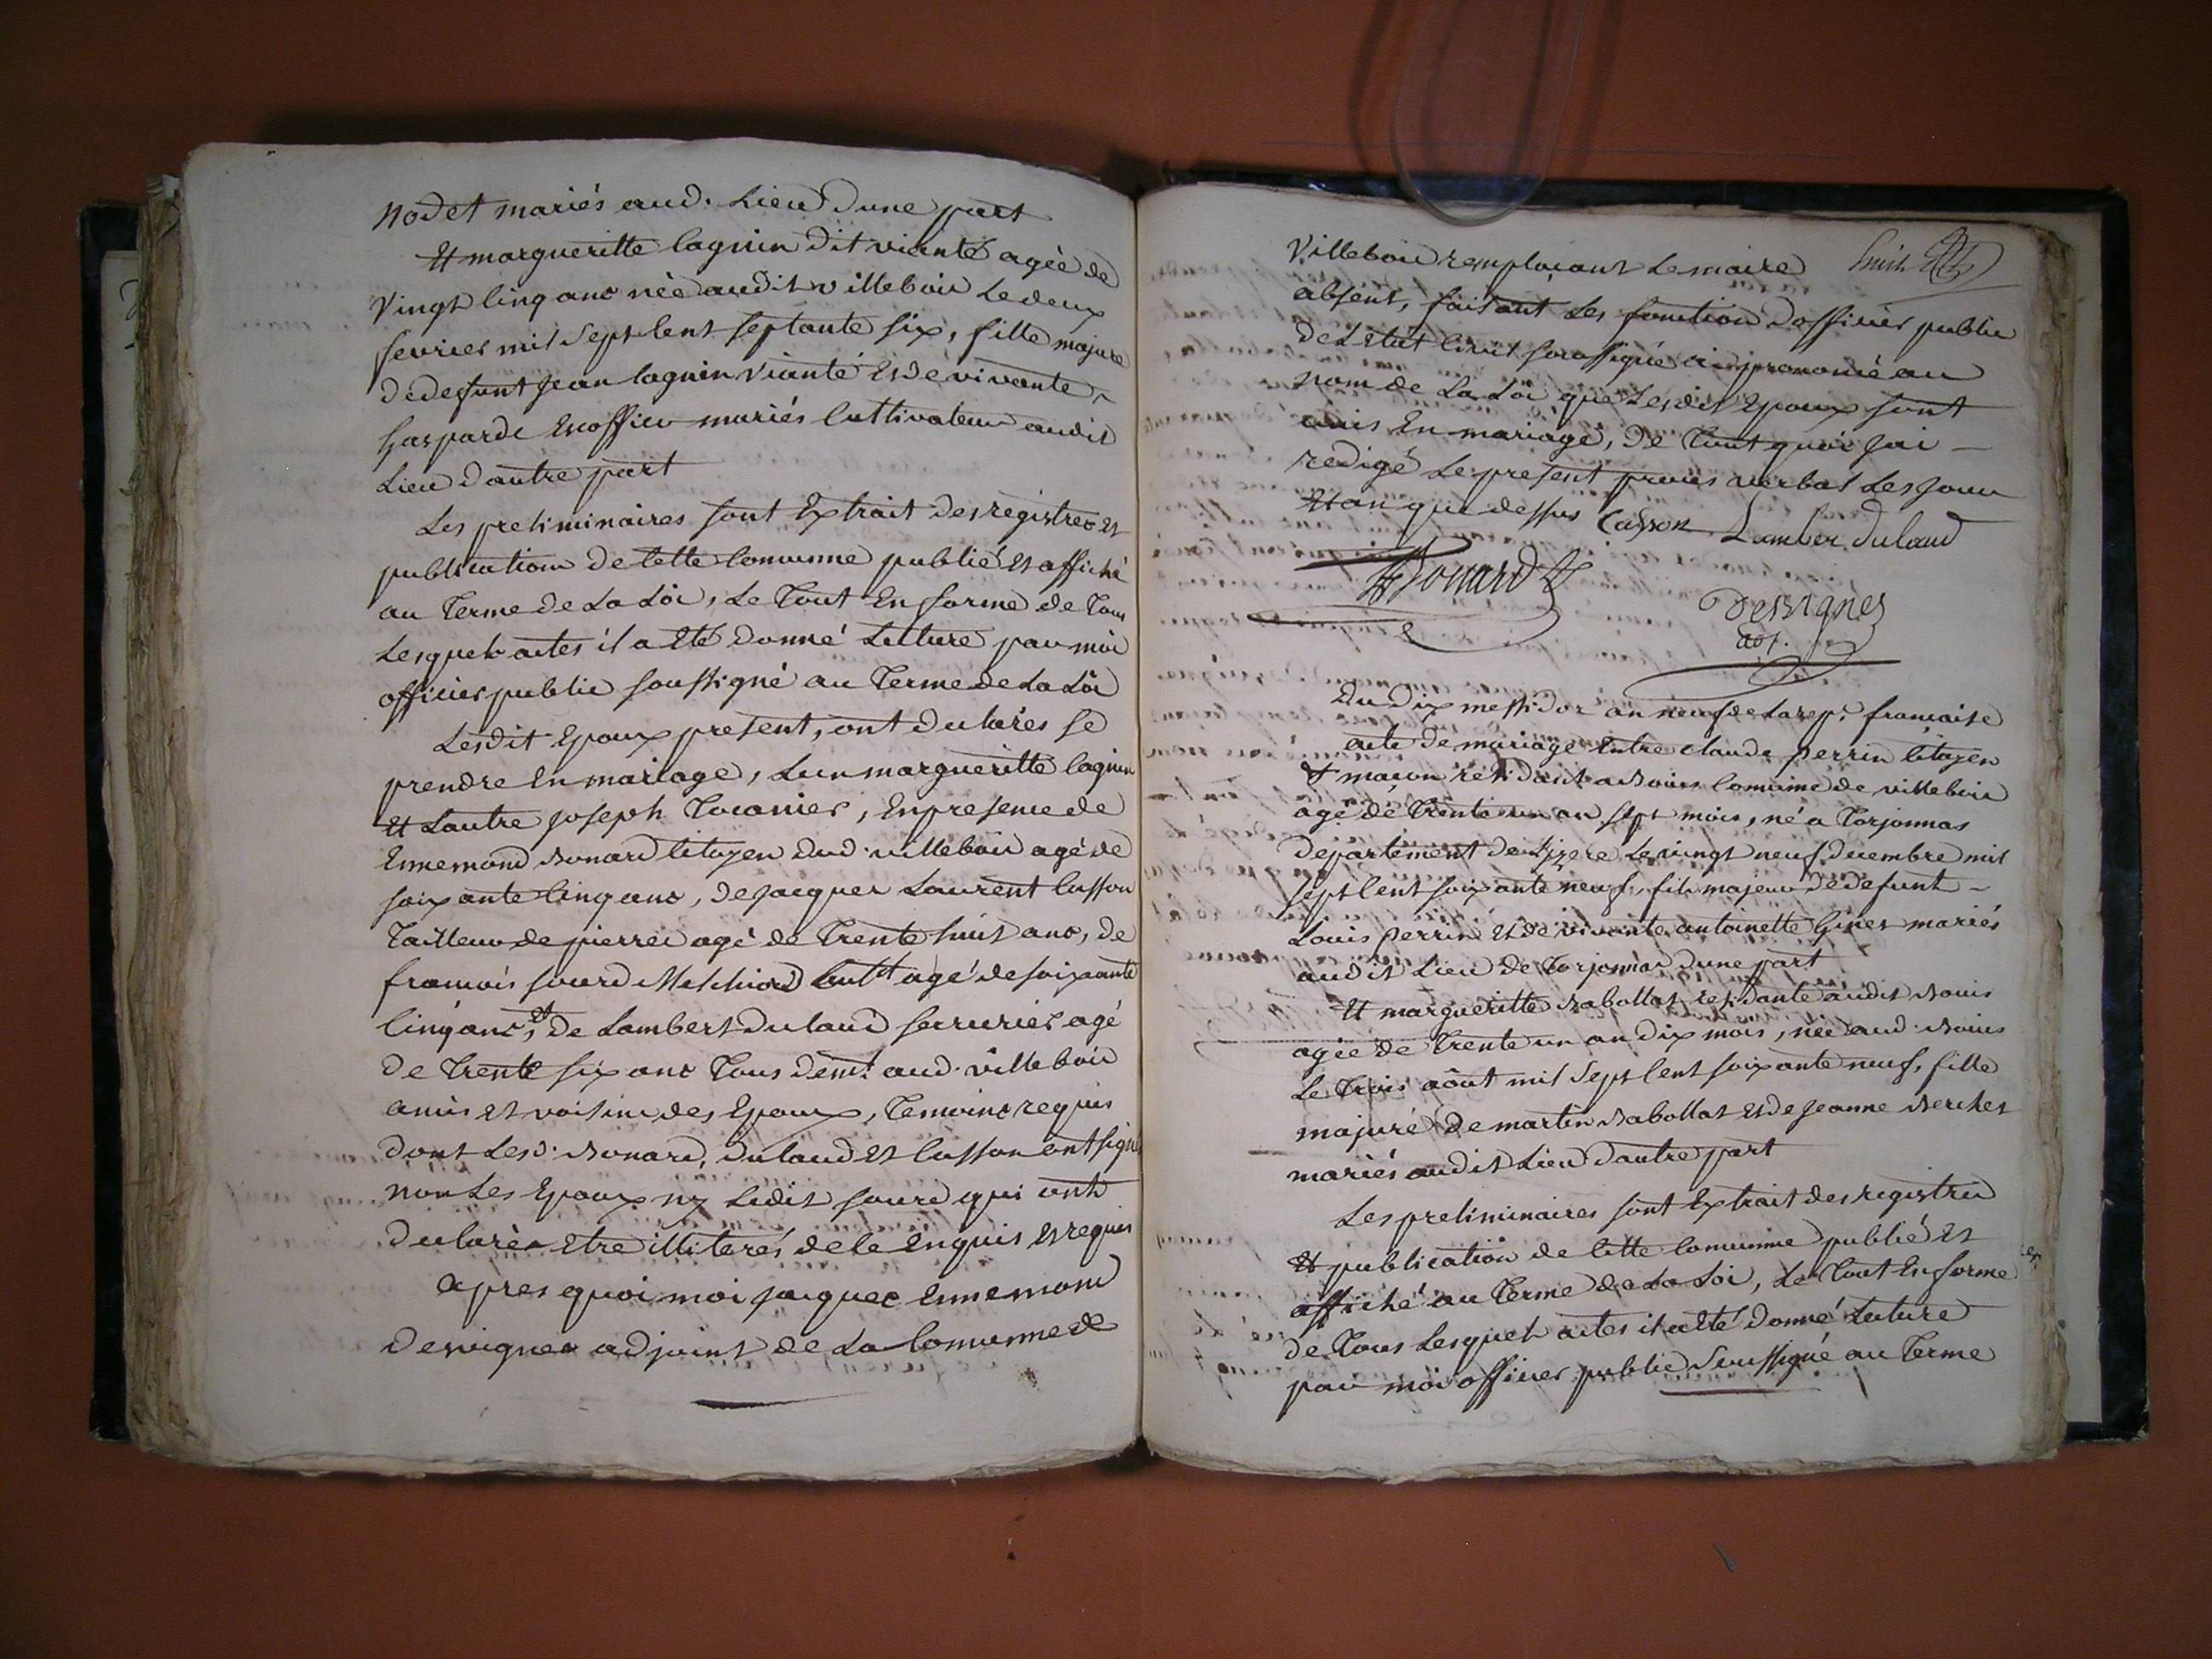 nodet mariés aud. Lieu Dune part
Et margueritte lagnien Dit vianté agée de
Vingt Cinq ans née audit villebois Le deux
fevrier mil Sept Cent Septante Six, fille majure
De defunt jean lagnien Vianté Et De vivante
gasparde Escoffier mariés Cultivateur audit
Lieu Dautre part
Les preliminaires sont Extrait des registres et
publications De Cette Commune publié et affiché
au Terme de La Loi, Le Tout En forme de Tous
Lesquels actes il a Eté Donné Lecture par moi
officier public soussigné au Terme de La Loi
Lesdit Epoux present, ont Declarés Se
prendre En mariage, Lun margueritte lagnien
Et Lautre joseph Tocanier, En presence de
Ennemond Bonard Citoyen Dud. villebois agé de
soixante Cinq ans, de jacques Laurent Casson
Tailleur de pierres agé de Trente huit ans, de
francois Sourd Melchiord Cultr agé de soixante
Cinq ans, et de Lambert Dulaud serrurier agé
De Trente six ans Tous demt. aud. villebois
amis et voisins des Epoux, Temoins requis
Dont Lesd. Bonard, Dulaud Et Casson ont signé
non Les Epoux ny Ledit Sourd qui ont
Declarés Etre illiterés de ce Enquis Et requis
apres quoi moi jacques Ennemond
Desvignes adjoint de La Commune de
Villebois remplacant Le maire
huit
absent, faisant Les fonction Dofficier public
de L'Etat Civil soussigné ai prononcé au
nom de La Loi que Lesdit Epoux sont
unis En mariage, De Tout quoi jai
redigé Le present procès verbal Les jour
Et an que dessus Casson Lamber Dulaud
Bonard
Desvignes
adj.
Du Dix messidor an neuf de La rep.e francaise
acte de mariage Entre claude perrin Citoyen
Et maçon residant a Bouis Commune de villebois
agé de Trente un an sept mois, né a Torjonnas
Departement de Lizere Le vingt neuf decembre mil
sept Cent soixante neuf, fils majeur de defunt
Louis perrin et de vivante antoinette Ginet mariés
audit Lieu de Torjonnas Dune part
Et margueritte Babollat residante audit Bouis
agée De Trente un an Dix mois, née aud. Bouis
Le Trois aôut mil Sept Cent soixante neuf, fille
majure De martin Babollat et de jeanne Berchet
mariés audit Lieu Dautre part
Les preliminaires sont Extrait des registres
Et publication de Cette Commune publié et
affiché au Terme de La Loi, Le Tout En forme
de Tous Lesquels actes il a Eté Donné Lecture
par moi officier public Soussigné au Terme